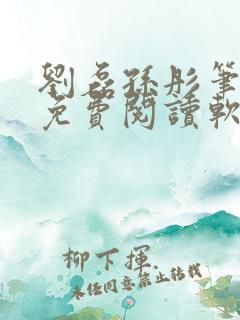 劉磊孫彤筆
免費閱讀軟
柳下揮.
未經同意禁止轉載